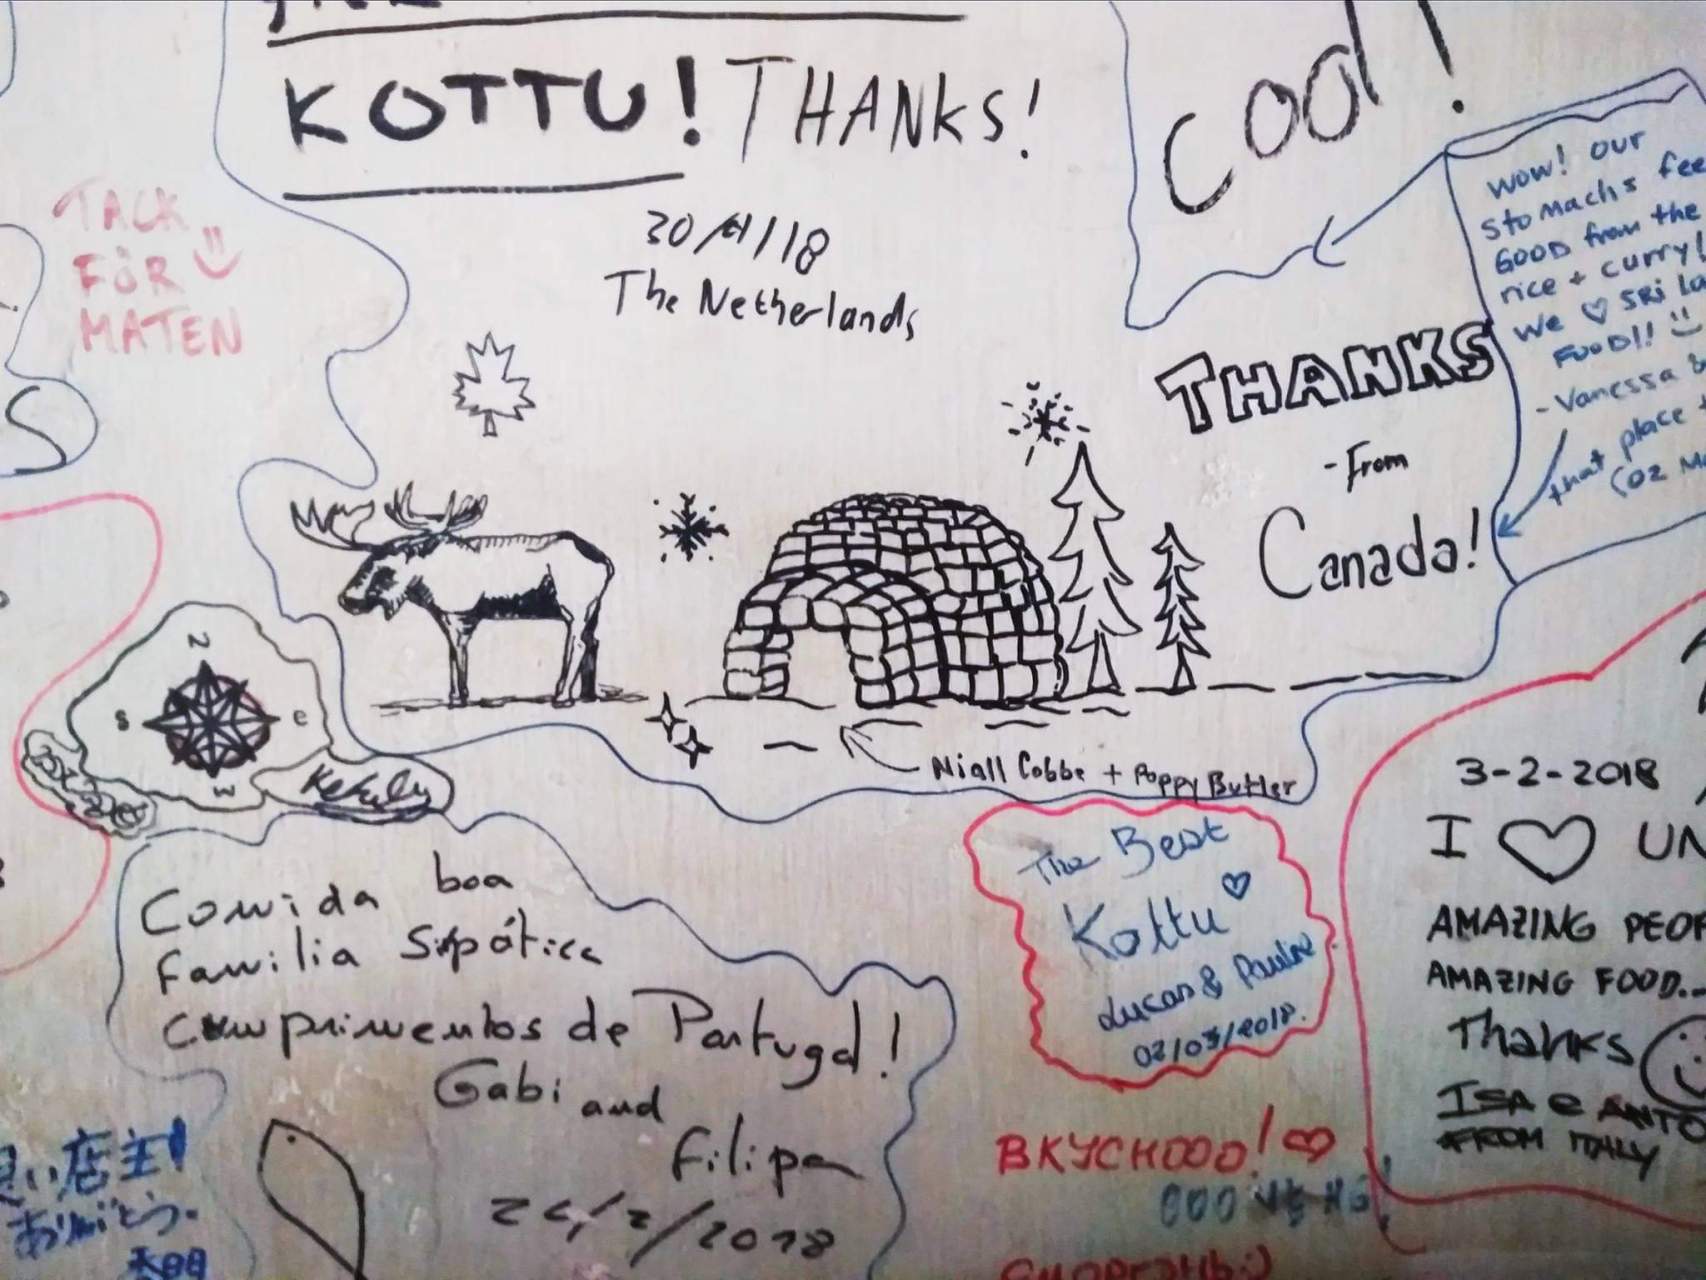 KOTTU! THANKS!
30/4/18
The Netherlands
Cool!
TACK
FÖR
MATEN
S
wow! our
stomachs
GOOD from the
rice + curry!
we ♡ SRi
FOOD!! :)
- Vanessa &
that place
(OZ
THANKS
- From
Canada!
Niall Cobbe + Poppy Butler
N
S e
w
Comida boa
Familia Sipática
Cumprimentos de Portugal!
Gabi and
Filipa
The Best
Kottu ♡
Lucas & Pauline
02/03/2018.
3-2-2018
I ♡
AMAZING
AMAZING FOOD...
Thanks
ISA e
FROM ITALY
ВКУСНООО! ♡
店主!
ありがとう。